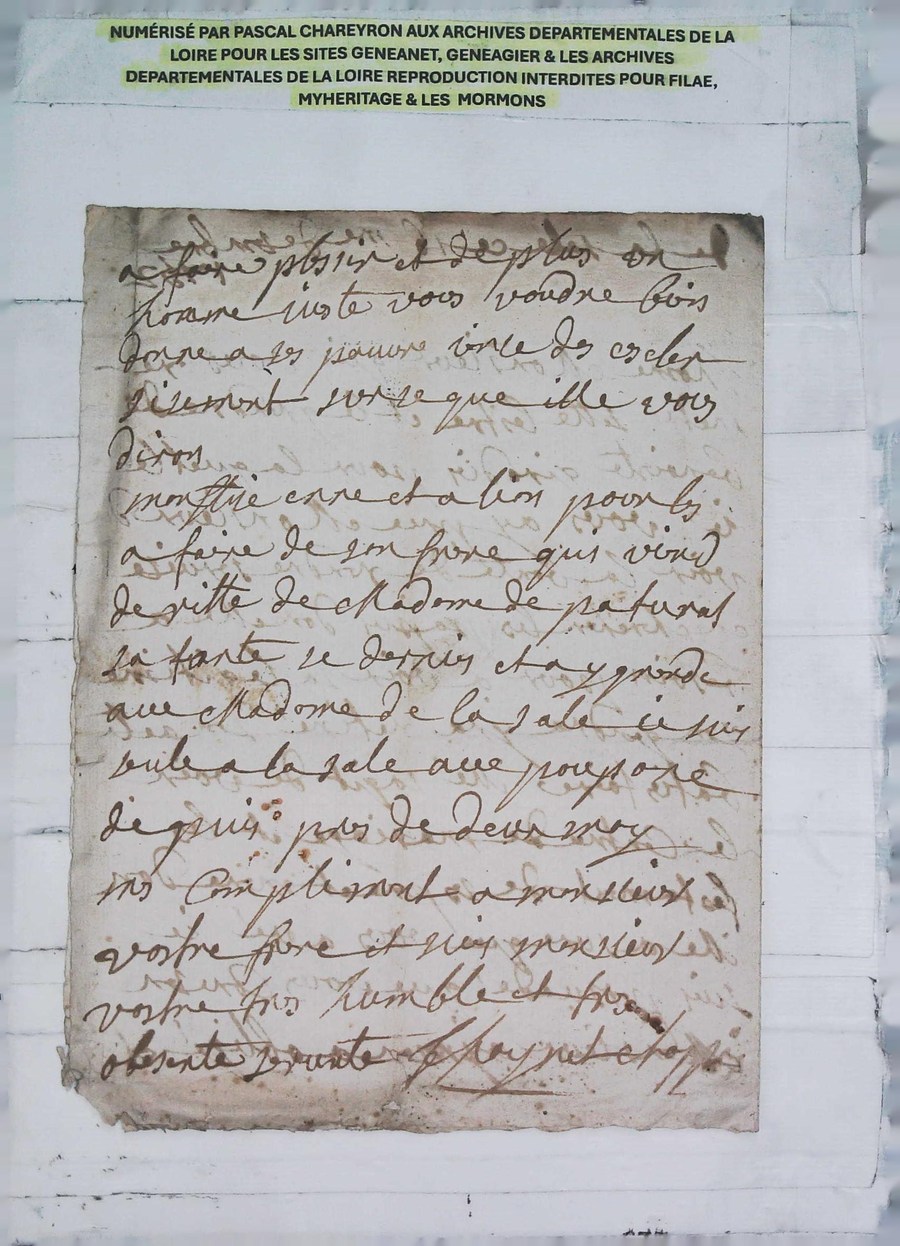 NUMÉRISÉ PAR PASCAL CHAREYRON AUX ARCHIVES DEPARTEMENTALES DE LA
LOIRE POUR LES SITES GENEANET, GENEAGIER & LES ARCHIVES
DEPARTEMENTALES DE LA LOIRE REPRODUCTION INTERDITES POUR FILAE,
MYHERITAGE & LES MORMONS
a faire plesir et de plus un
homme juste vous voudre bien
donne a ses pauvre des escler
sisement sur se que ille vous
diron
etienne et a lion pour les
a faire de son frere qui vind
de Madame de patural
sa tante se dernies et ay grande
ave Madame de la sale ie suis
seule a la sale ave poupone
depuis pres de deux moy
mes compliment a monsieur
vostre frere et suis monsieur
vostre tres humble et tres
obesente servante